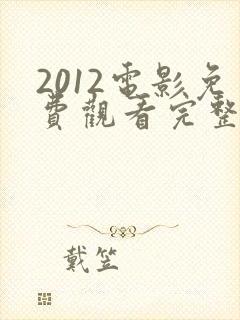 2012電影免
費觀看完整
戴笠